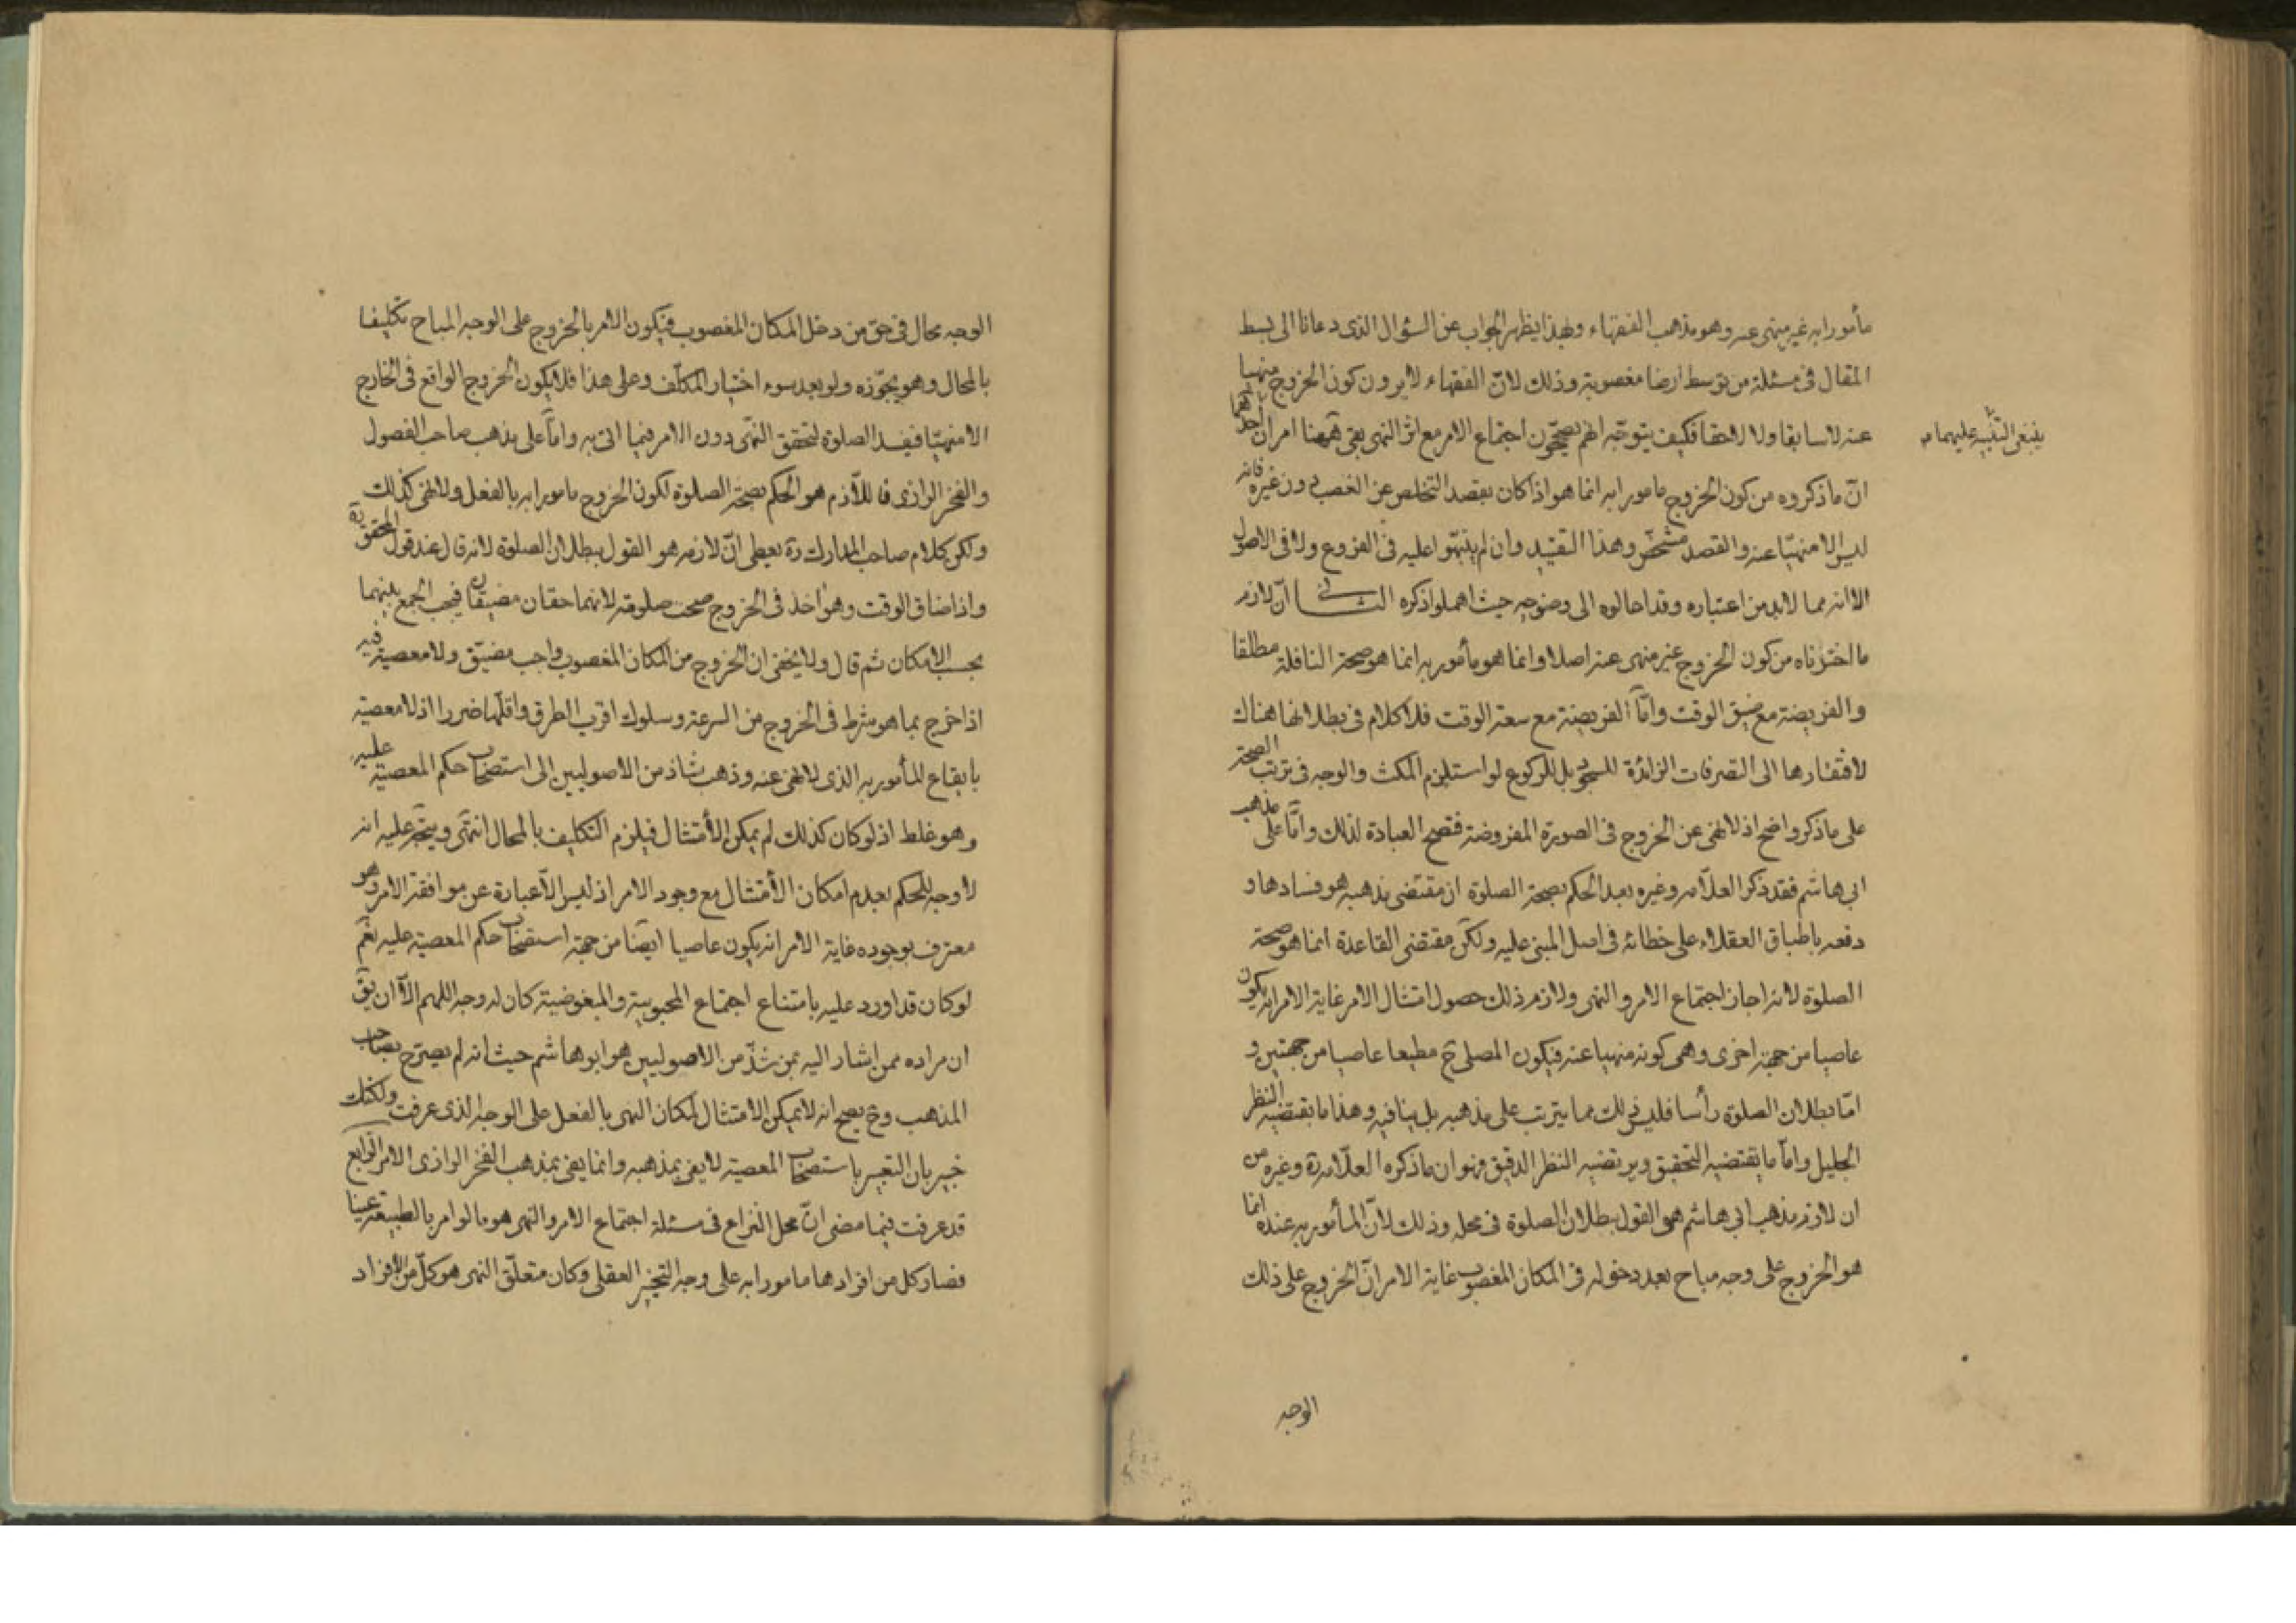 مأمورا به غير منهى عنه وهو مذهب الفقهاء وبهذا يظهر الجواب عن السؤال الذى دعانا الى بسط
المقال فى مسئلة من توسط ارضا مغصوبة وذلك لانّ الفقهاء لا يرون كون الخروج منهيا
عنه لا سابقا ولا لاحقا فكيف يتوجّه انهم يصحّحون اجتماع الامر مع اثر النهى بقى ههنا امران احدهما
ينبغى التنبيه عليهما م
انّ ما ذكروه من كون الخروج مامورا به انما هو اذا كان بقصد التخلص عن الغصب دون غيره فانه
ليس الا منهيّا عنه والقصد مشخّص وهذا التقييد وان لم ينبّهوا عليه فى الفروع ولا فى الاصول
الا انه مما لا بد من اعتباره وقد احالوه الى وضوحه حيث اهملوا ذكره الثانى انّ لازم
ما اخترناه من كون الخروج غير منهى عنه اصلا وانما هو مأمور به انما هو صحة النافلة مطلقا
والفريضة مع ضيق الوقت وامّا الفريضة مع سعة الوقت فلا كلام فى بطلانها هناك
لافتقارها الى التصرفات الزائدة للسجود بل للركوع لو استلزم المكث والوجه فى ترتب الصحة
على ما ذكر واضح اذ لا نهى عن الخروج فى الصورة المفروضة فتصح العبادة لذلك وامّا على مذهب
ابى هاشم فقد ذكر العلّامه وغيره بعد الحكم بصحة الصلوة ان مقتضى مذهبه هو فسادها و
دفعه باطباق العقلاء على خطائه فى اصل المبنى عليه ولكن مقتضى القاعدة انما هو صحة
الصلوة لانه اجاز اجتماع الامر والنهى ولازم ذلك حصول امتثال الامر غاية الامر انه يكون
عاصيا من جهة اخرى وهى كونه منهيا عنه فيكون المصلى ح مطيعا عاصيا من جهتين و
امّا بطلان الصلوة رأسا فليس ذلك مما يترتب على مذهبه بل ينافيه وهذا ما يقتضيه النظر
الجليل وامّا ما يقتضيه التحقيق ويرتضيه النظر الدقيق فهو ان ما ذكره العلّامة ره وغيره من
ان لازم مذهب ابى هاشم هو القول ببطلان الصلوة فى محله وذلك لانّ المأمور به عنده انما
هو الخروج على وجه مباح بعد دخوله فى المكان المغصوب غاية الامر انّ الخروج على ذلك
الوجه
الوجه محال فى حق من دخل المكان المغصوب فيكون الامر بالخروج على الوجه المباح تكليفا
بالمحال وهو يجوّزه ولو بعد سوء اختيار المكلّف وعلى هذا فلا يكون الخروج الواقع فى الخارج
الا منهيّا فيفسد الصلوة لتحقق النهى دون الامر فيما اتى به وامّا على مذهب صاحب الفصول
والفخر الرازى فاللّازم هو الحكم بصحة الصلوة لكون الخروج مامورا به بالفعل ولا نهى كذلك
ولكن كلام صاحب المدارك ره يعطى انّ لازمه هو القول ببطلان الصلوة لانه قال عند قول المحقق ره
واذا ضاق الوقت وهو اخذ فى الخروج صحت صلوته لانهما حقان مضيقان فيجب الجمع بينهما
بحسب الامكان ثم قال ولا يخفى ان الخروج من المكان المغصوب واجب مضيّق ولا معصية فيه
اذا خرج بما هو شرط فى الخروج من السرعة وسلوك اقرب الطرق واقلّها ضررا اذ لا معصية
بايقاع المأمور به الذى لا نهى عنه وذهب شاذ من الاصوليين الى استصحاب حكم المعصية عليه
وهو غلط اذ لو كان كذلك لم يمكن الأمتثال فيلزم التكليف بالمحال انتهى ويتجه عليه انه
لا وجه للحكم بعدم امكان الأمتثال مع وجود الامر اذ ليس الا عبارة عن موافقة الامر وهو
معترف بوجوده غاية الامر انه يكون عاصيا ايضا من جهة استصحاب حكم المعصية عليه نعم
لو كان قد اورد عليه بامتناع اجتماع المحبوبية والمبغوضية كان له وجه اللهم الّا ان يق
ان مراده ممن اشار اليه بمن شذّ من الاصوليين هو ابو هاشم حيث انه لم يصرّح بصاحب
المذهب وح يصح انه لا يمكن الامتثال لمكان النهى بالفعل على الوجه الذى عرفت ولكنك
خبير بان التعبير باستصحاب المعصية لا يفى بمذهبه وانما يفى بمذهب الفخر الرازى الامر الرابع
قد عرفت فيما مضى انّ محل النزاع فى مسئلة اجتماع الامر والنهى هو ما لو امر بالطبيعة عينا
فصار كل من افرادها مامورا به على وجه التخيير العقلى وكان متعلّق النهى هو كلّ من الافراد